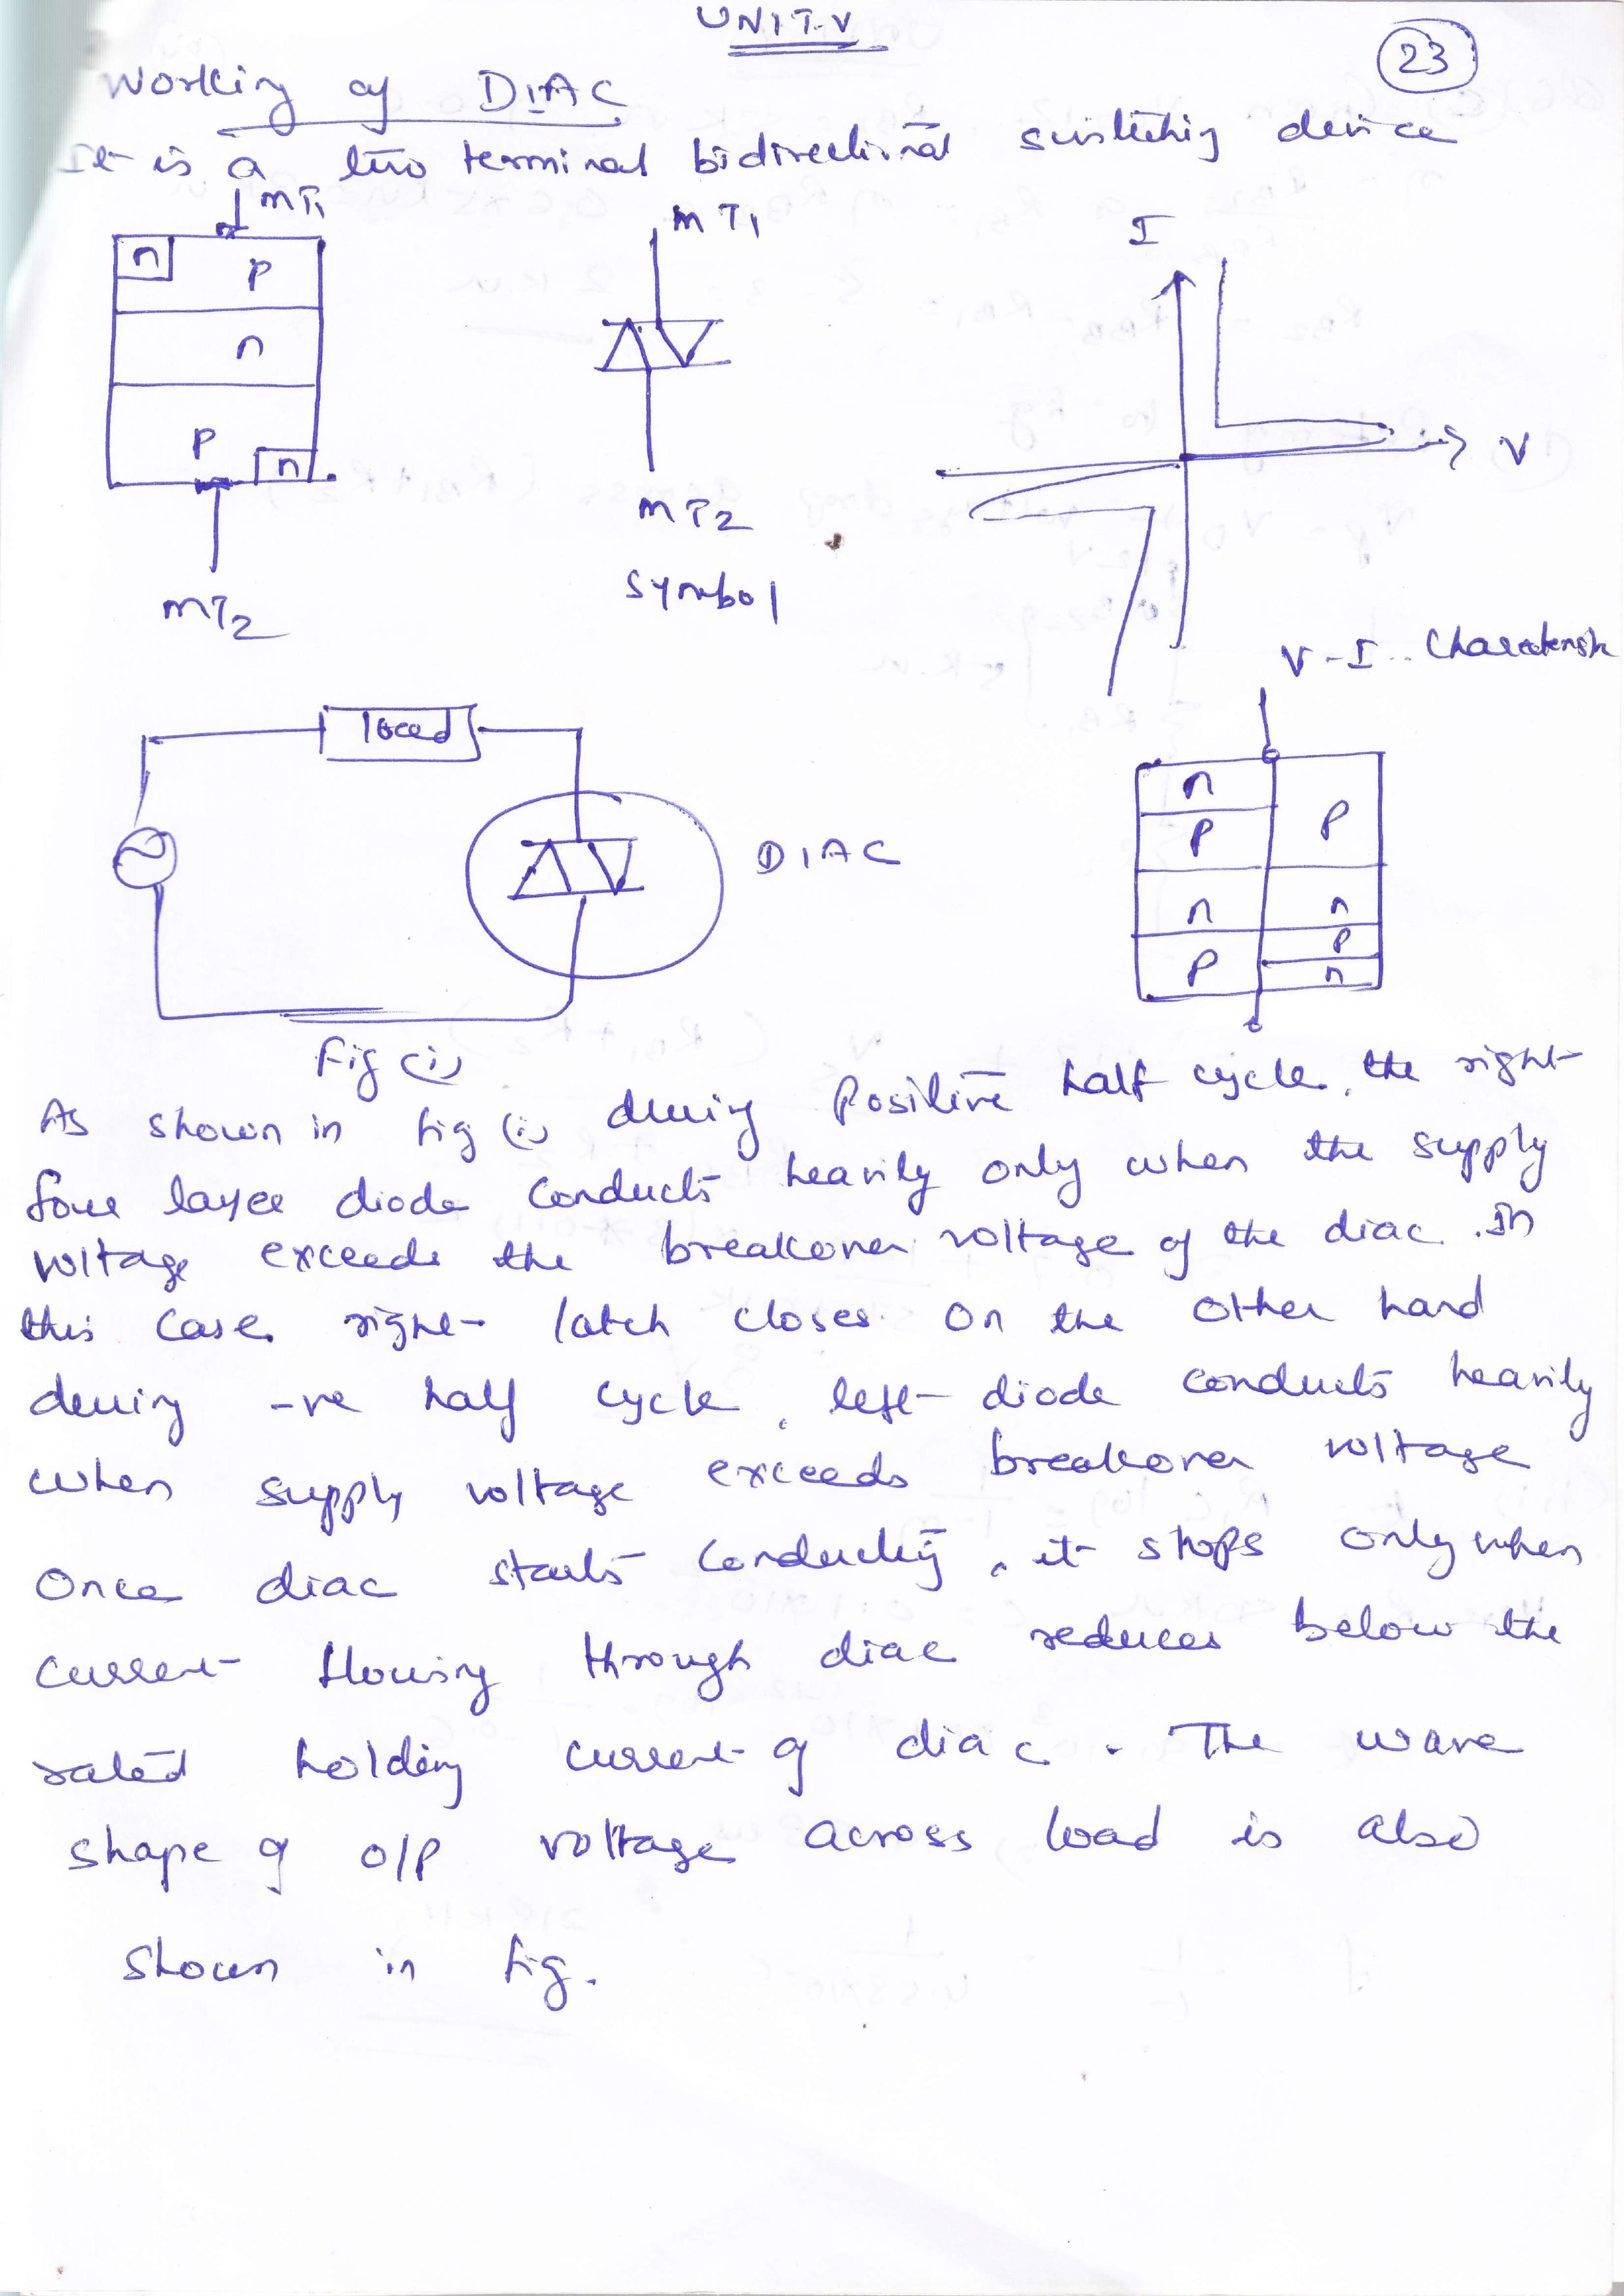 UNIT-V
23
Working of DIAC
It is a two terminal bidirectional switching device
MT1
n
p
n
p
n
MT2
MT1
MT2
Symbol
I
V
V-I Charactersti
load
DIAC
n
p
p
n
n
p
p
n
Fig (i)
As shown in fig (i) during Positive half cycle, the right
four layer diode conducts heavily only when the supply
voltage exceeds the breakover voltage of the diac. In
this case right latch closes. On the other hand
during -ve half cycle, left diode conducts heavily
when supply voltage exceeds breakover voltage
Once diac starts Conducting, it stops only when
current flowing through diac reduces below the
rated holding current of diac. The wave
shape of o/p voltage across load is also
shown in fig.